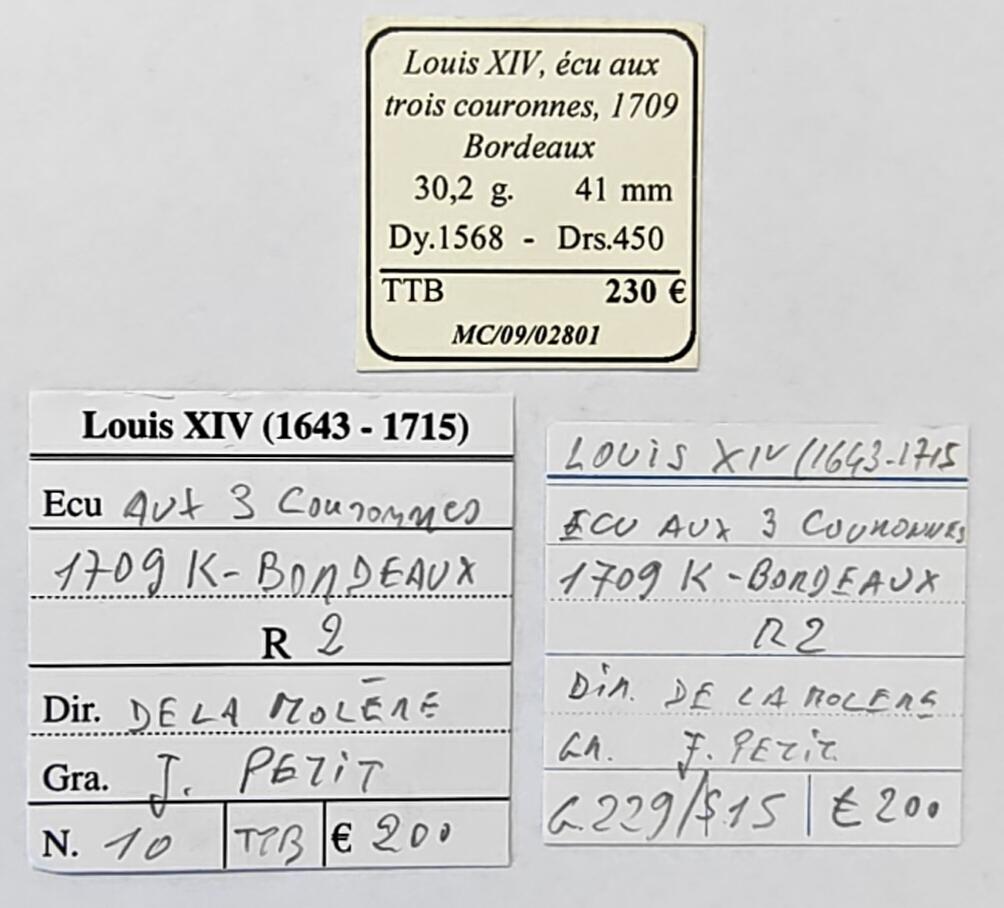 Louis XIV, écu aux
trois couronnes, 1709
Bordeaux
30,2 g. 41 mm
Dy.1568 - Drs.450
TTB 230 €
MC/09/02801
Louis XIV (1643 - 1715)
Ecu AUX 3 COURONNES
1709 K - BORDEAUX
R 2
Dir. DE LA MOLĒRE
Gra. J. PETIT
N. 10 TTB € 200
LOUIS XIV (1643-1715
ECU AUX 3 COURONNES
1709 K - BORDEAUX
R2
Dir. DE LA MOLERE
Gr. J. PETIT
G.229/§.15 € 200